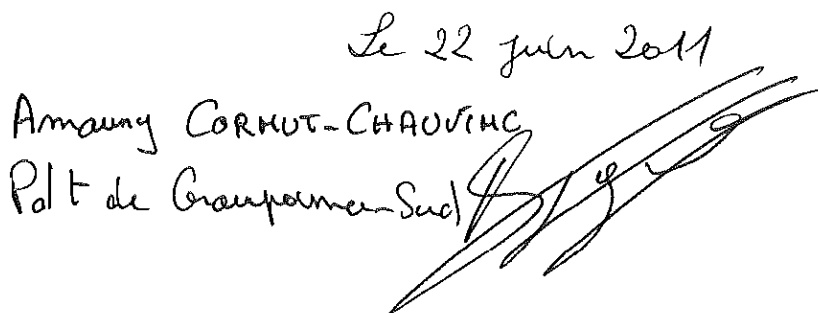 Le 22 juin 2011
Amaury CORNUT-CHAUVINC
Pdt de Groupama Sud